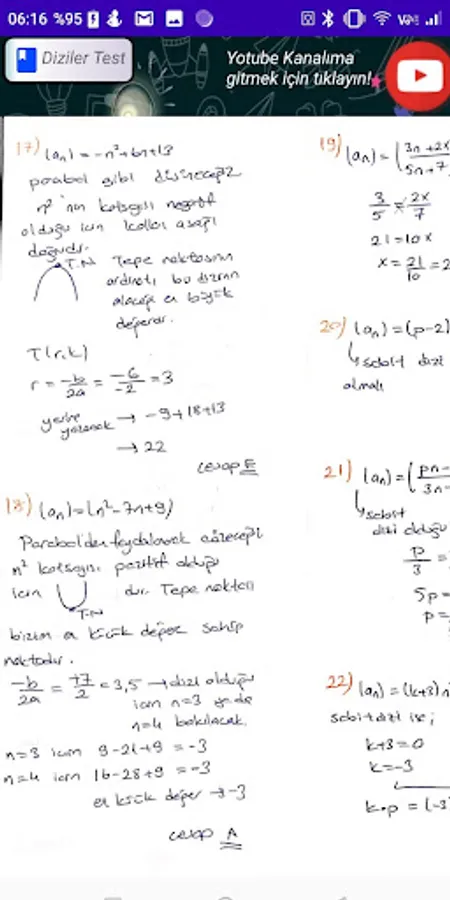 06:16 %95
Diziler Test
Yotube Kanalıma
gitmek için tıklayın!
17) (an) = -n²+6n+13
parabol gibi düşüneceğiz
n² 'nın katsayısı negatif
olduğu için kollar aşağı
doğrudur.
T.N Tepe noktasının
ordinatı bu dizinin
alacağı en büyük
değerdir.
T(r,k)
r = -b/2a = -6/-2 = 3
yerine yazarsak → -9+18+13
→ 22
cevap E
18) (an) = (n²-7n+9)
Parabol'den faydalanarak çözeceğiz
n² katsayısı pozitif olduğu
için dur. Tepe noktası
T.N
bizim en küçük değere sahip
noktadır.
-b/2a = +7/2 = 3,5 → dizi olduğu
için n=3 ya da
n=4 bakılacak.
n=3 için 9-21+9 = -3
n=4 için 16-28+9 = -3
en küçük değer → -3
cevap A
19) (an) = (3n+2x/5n+7
3/5 = 2x/7
21=10x
x = 21/10 = 2
20) (an) = (p-2)
↳ sabit dizi
olmalı
21) (an) = (pn-/3n-
↳ sabit
dizi olduğu
p/3 =
5p=
p=
22) (an) = (k+3)n
sabit dizi ise;
k+3=0
k=-3
k.p = (-3)